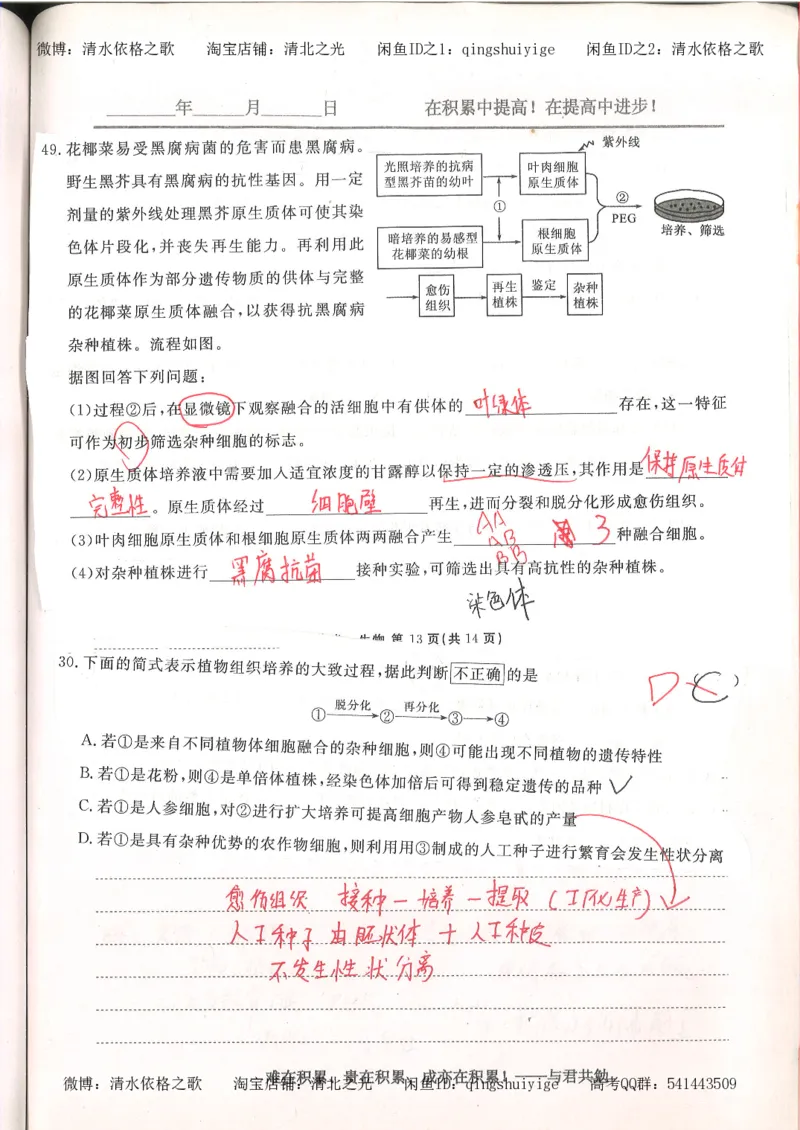 微博：清水依格之歌 淘宝店铺：清北之光 闲鱼ID之1：qingshuiyige 闲鱼ID之2：清水依格之歌
年 月 日 在积累中提高！在提高中进步！
49.花椰菜易受黑腐病菌的危害而患黑腐病。
野生黑芥具有黑腐病的抗性基因。用一定
剂量的紫外线处理黑芥原生质体可使其染
色体片段化，并丧失再生能力。再利用此
原生质体作为部分遗传物质的供体与完整
的花椰菜原生质体融合，以获得抗黑腐病
杂种植株。流程如图。
紫外线
光照培养的抗病
型黑芥苗的幼叶
叶肉细胞
原生质体
①
②
PEG
暗培养的易感型
花椰菜的幼根
根细胞
原生质体
培养、筛选
愈伤
组织
再生
植株
鉴定
杂种
植株
据图回答下列问题：
(1)过程②后，在显微镜下观察融合的活细胞中有供体的 叶绿体 存在，这一特征
可作为初步筛选杂种细胞的标志。
(2)原生质体培养液中需要加入适宜浓度的甘露醇以保持一定的渗透压，其作用是 保持原生质体
完整性。原生质体经过 细胞壁 再生，进而分裂和脱分化形成愈伤组织。
(3)叶肉细胞原生质体和根细胞原生质体两两融合产生 AA AB BB 3 种融合细胞。
(4)对杂种植株进行 黑腐抗菌 接种实验，可筛选出具有高抗性的杂种植株。
染色体
生物 第13页(共14页)
30.下面的简式表示植物组织培养的大致过程，据此判断不正确的是
D C )
①脱分化②再分化③④
A.若①是来自不同植物体细胞融合的杂种细胞，则④可能出现不同植物的遗传特性
B.若①是花粉，则④是单倍体植株，经染色体加倍后可得到稳定遗传的品种 ✓
C.若①是人参细胞，对②进行扩大培养可提高细胞产物人参皂甙的产量
D.若①是具有杂种优势的农作物细胞，则利用用③制成的人工种子进行繁育会发生性状分离
愈伤组织 接种－培养－提取（工厂化生产）✓
人工种子 由胚状体 + 人工种皮
不发生性状分离
难在积累，贵在积累，成亦在积累！——与君共勉
微博：清水依格之歌 淘宝店铺：清北之光 闲鱼ID：qingshuiyige 高考QQ群：541443509